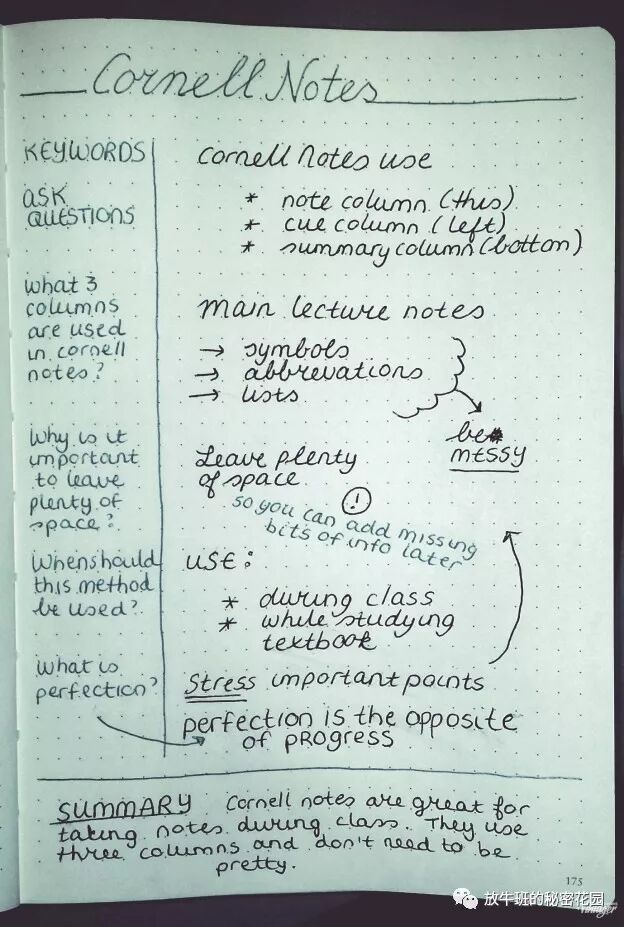 Cornell Notes
KEYWORDS
ASK
QUESTIONS
what 3
columns
are used
in cornell
notes?
Why is it
important
to leave
plenty of
space?
When should
this method
be used?
What is
perfection?
Cornell notes use
* note column (this)
* cue column (left)
* summary column (bottom)
main lecture notes
→ symbols
→ abbrevations
→ lists
be
messy
Leave plenty
of space
!
so you can add missing
bits of info later
use:
* during class
* while studying
textbook
Stress important points
perfection is the opposite
of progress
SUMMARY Cornell notes are great for
taking notes during class. They use
three columns and don't need to be
pretty.
175
放牛班的秘密花园